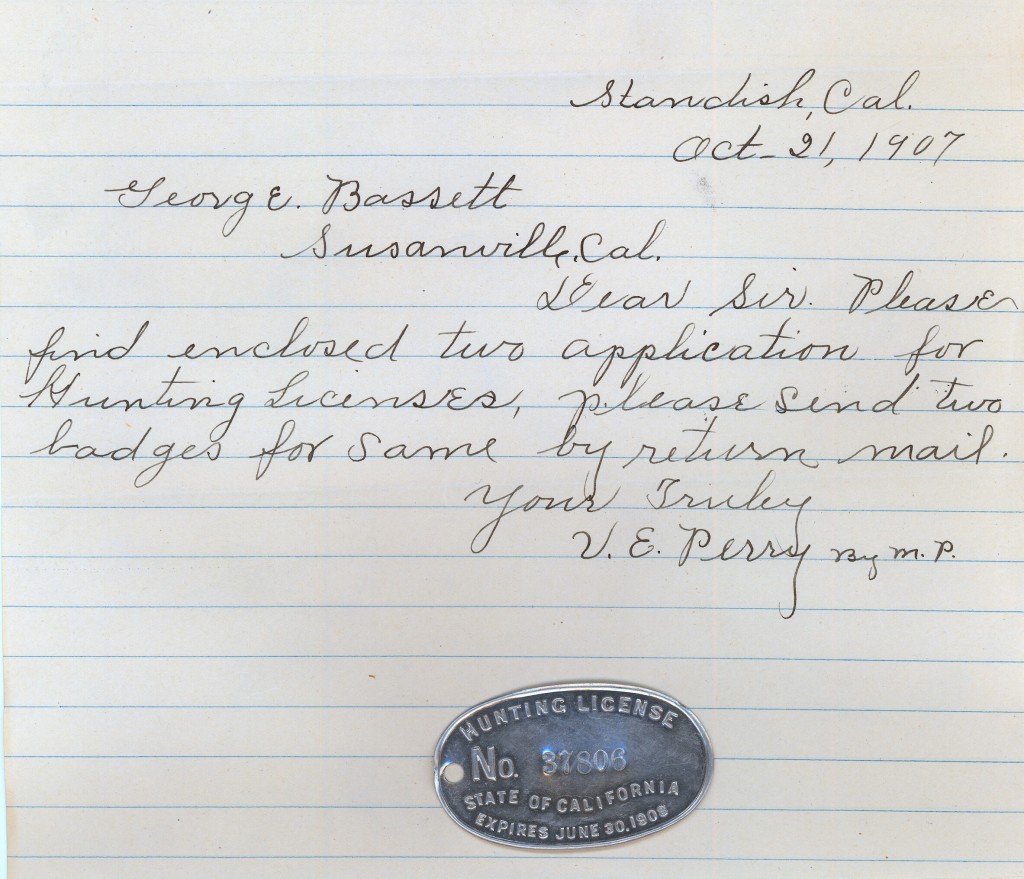 Standish, Cal.
Oct. 21, 1907
George. Bassett
Susanville, Cal.
Dear Sir. Please
find enclosed two application for
Hunting Licenses, please send two
badges for same by return mail.
Your Truley
V. E. Perry By M. P.
HUNTING LICENSE
No. 37806
STATE OF CALIFORNIA
EXPIRES JUNE 30.1908